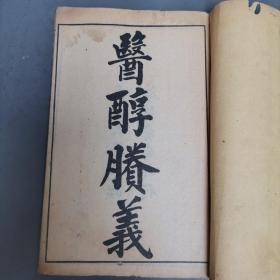 醫醇賸義